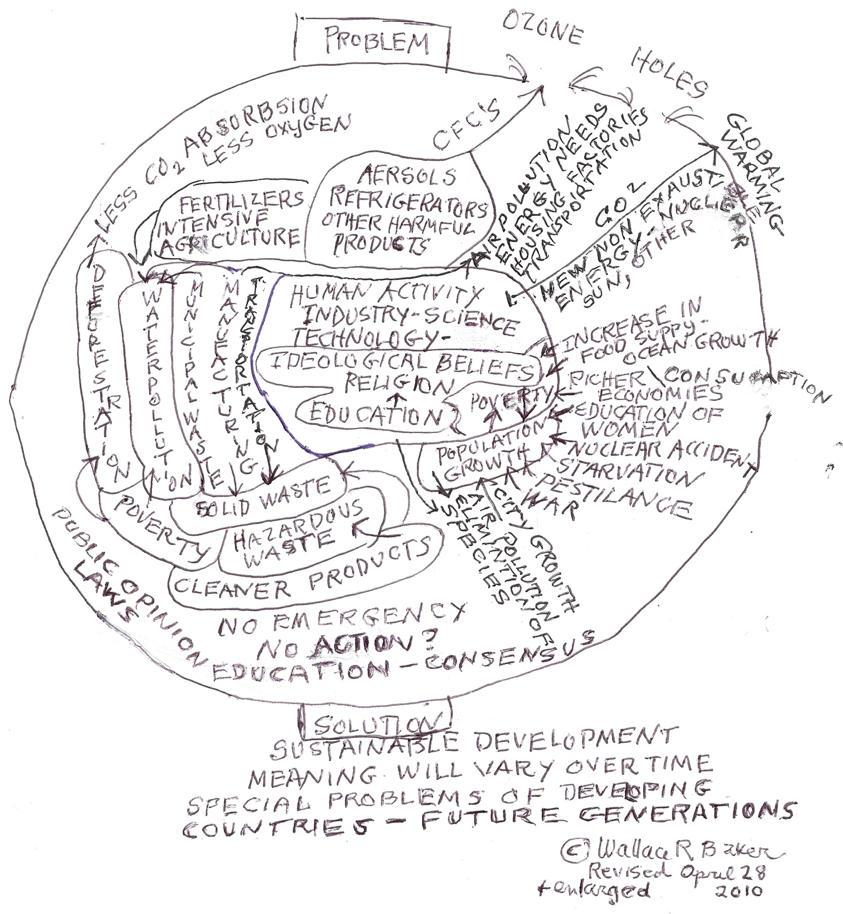 PROBLEM
OZONE
HOLES
LESS CO2 ABSORBSION
LESS OXYGEN
CFC'S
GLOBAL
WARMING
FERTILIZERS
INTENSIVE
AGRICULTURE
AERSOLS
REFRIGERATORS
OTHER HARMFUL
PRODUCTS
AIR POLLUTION
ENERGY NEEDS
HOUSING FACTORIES
TRANSPORTATION
CO2
NEW NON EXAUSTIBLE
ENERGY - NUCLIER
SUN, OTHER
DEFORESTRATION
WATERPOLLUTION
MUNICIPAL WASTE
MANUFACTURING
TRANSPORTATION
HUMAN ACTIVITY
INDUSTRY-SCIENCE
TECHNOLOGY-
IDEOLOGICAL BELIEFS
RELIGION
EDUCATION
POVERTY
POPULATION
GROWTH
INCREASE IN
FOOD SUPPY-
OCEAN GROWTH
RICHER CONSUMPTION
ECONOMIES
EDUCATION OF
WOMEN
NUCLEAR ACCIDENT
STARVATION
PESTILANCE
WAR
CITY GROWTH
AIR POLLUTION
ELIMINTION OF
SPECIES
SOLID WASTE
POVERTY
HAZARDOUS
WASTE
CLEANER PRODUCTS
PUBLIC OPINION
LAWS
NO EMERGENCY
NO ACTION?
EDUCATION - CONSENSUS
SOLUTION
SUSTAINABLE DEVELOPMENT
MEANING WILL VARY OVER TIME
SPECIAL PROBLEMS OF DEVELOPING
COUNTRIES - FUTURE GENERATIONS
© Wallace R. Baker
Revised April 28
+ enlarged 2010